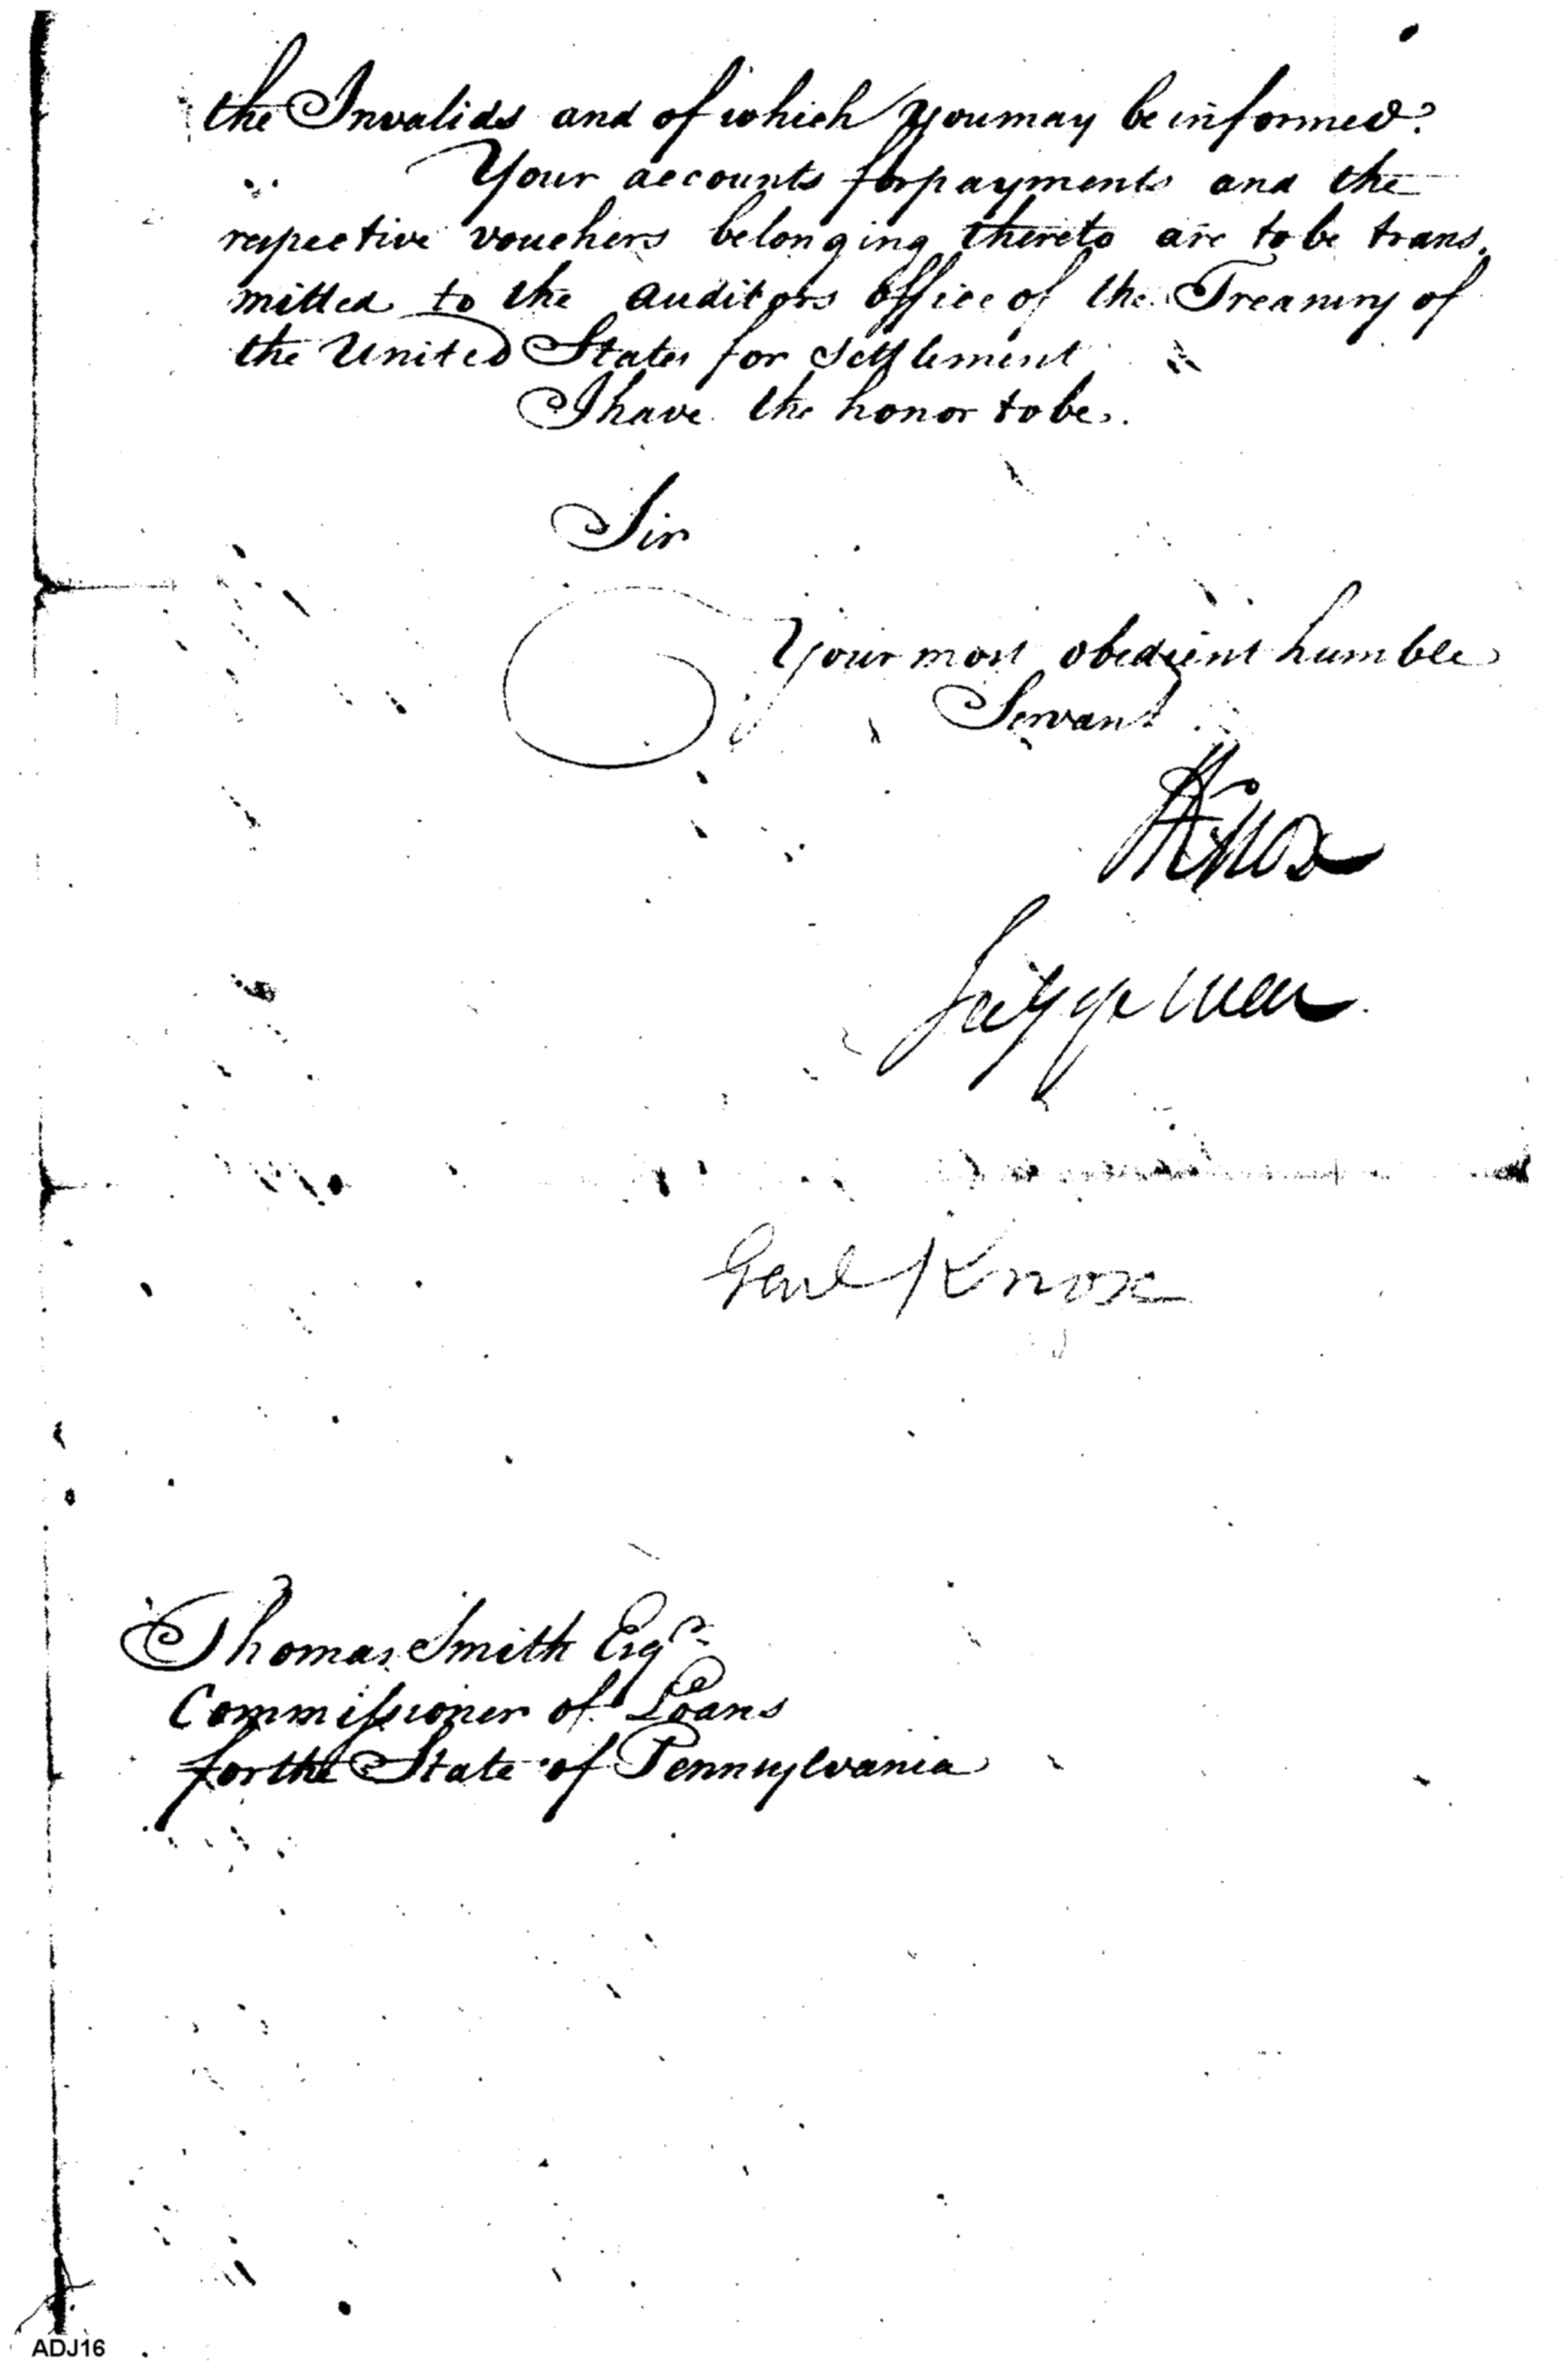 the Invalids and of which you may be informed.
Your accounts for payments and the
respective vouchers belonging thereto are to be trans
mitted to the auditors office of the Treasury of
the United States for settlement
I have the honor to be.
Sir
Your most obedient humble
Servant
HKnox
Genl Knox
Thomas Smith Esqr
Commissioner of Loans
for the State of Pennsylvania
ADJ16